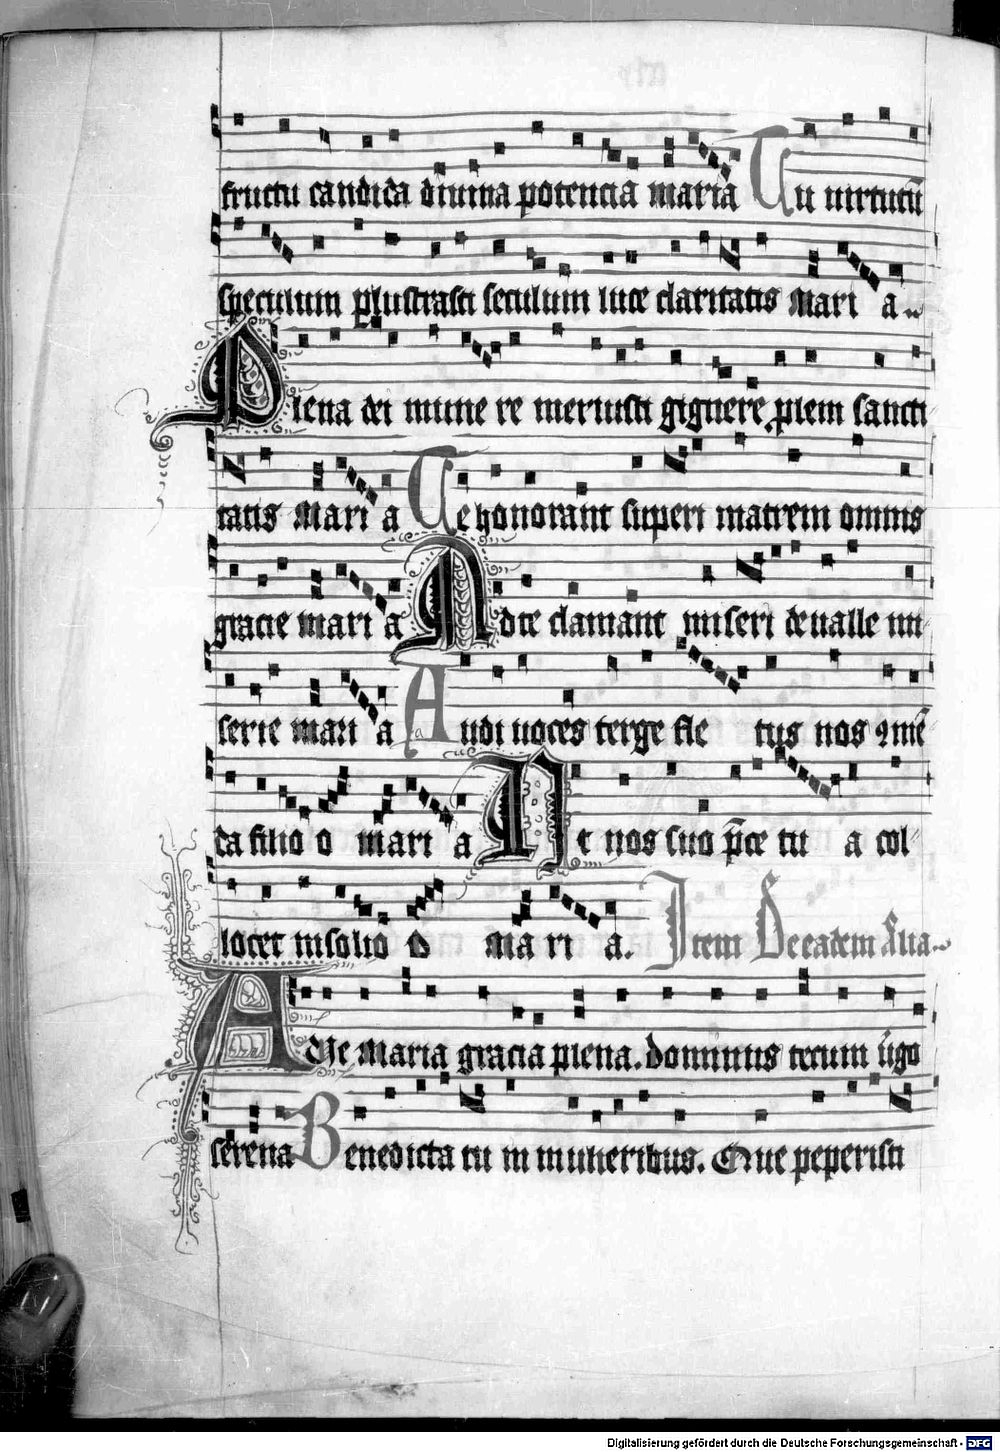 fructu candida diuina potencia maria Tu uirtutū
speculum plustrasti seculum luce claritatis Mari a
Plena dei mune re meruisti gignere plem sancti
tatis Mari a Te honorant superi matrem omnis
gracie mari a Ad te clamant miseri de ualle mi
serie mari a Audi uoces terge fle tus nos ꝯmē
da filio o mari a Ut nos suo p̄ce tu a col
locet in solio o ma ri a. Item De eadem
AUe Maria gracia plena. dominus tecum ūgo
serena Benedicta tu in mulieribus. Que peperisti
Digitalisierung gefördert durch die Deutsche Forschungsgemeinschaft - DFG